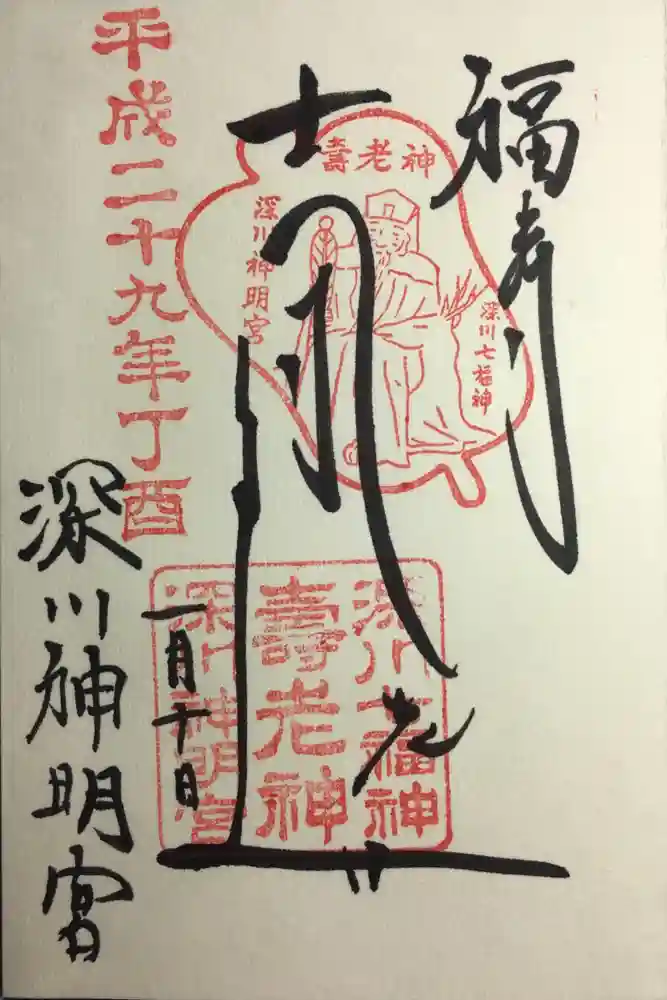 福寿
壽老神
深川七福神
深川神明宮
深川七福神
壽老神
深川神明宮
一月十日
平成二十九年丁酉
深川神明宮